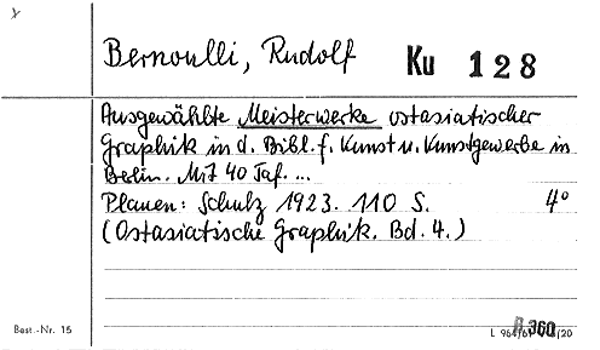 Bernoulli, Rudolf Ku 128
Ausgewählte Meisterwerke ostasiatischer
Graphik in d. Bibl. f. Kunst u. Kunstgewerbe in
Berlin. Mit 40 Taf. ...
Planen: Schulz 1923. 110 S. 4°
(Ostasiatische Graphik. Bd. 4.)
Best.-Nr. 15 L 964/61 360 /20